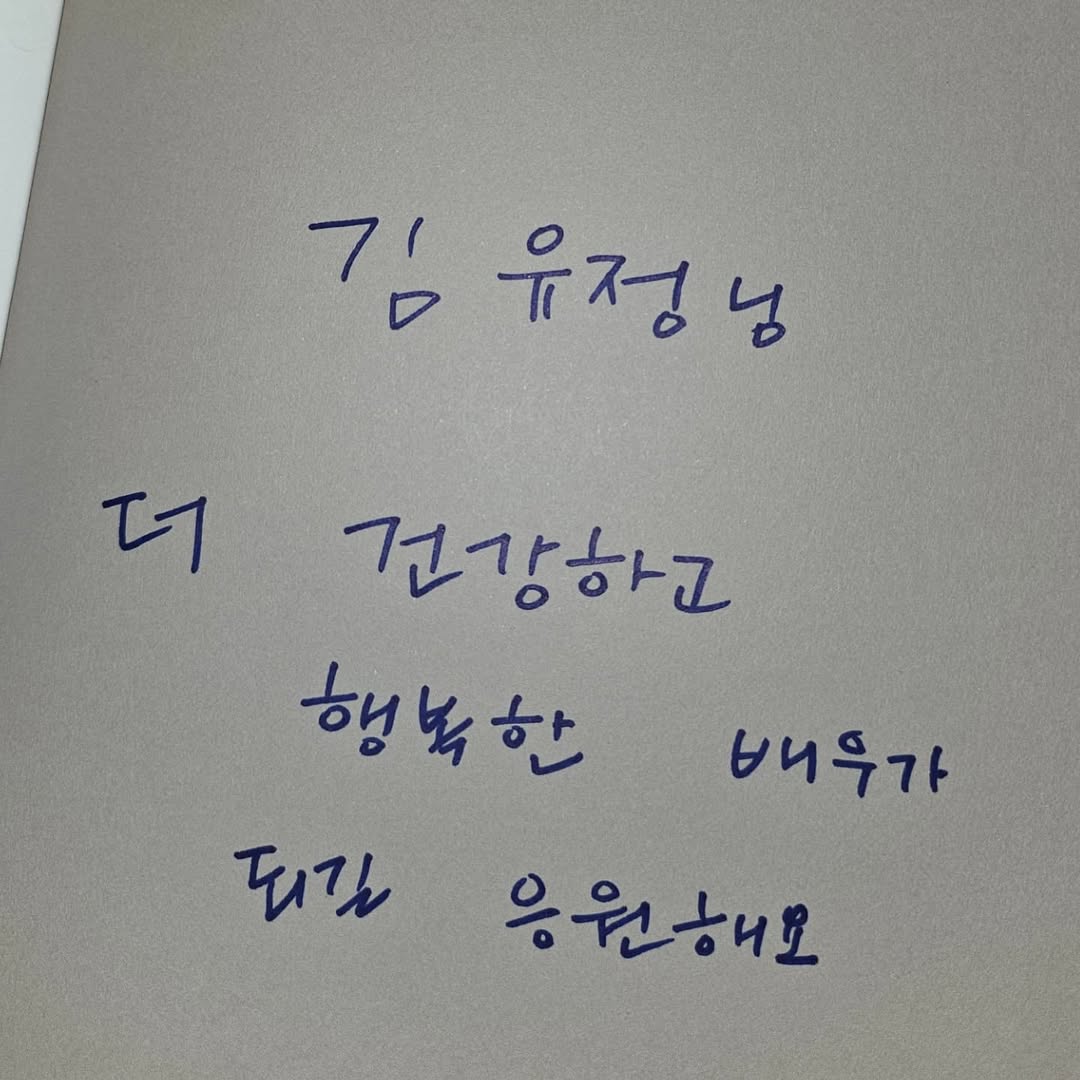 김 유정님
더 건강하고
행복한 배우가
되길 응원해요